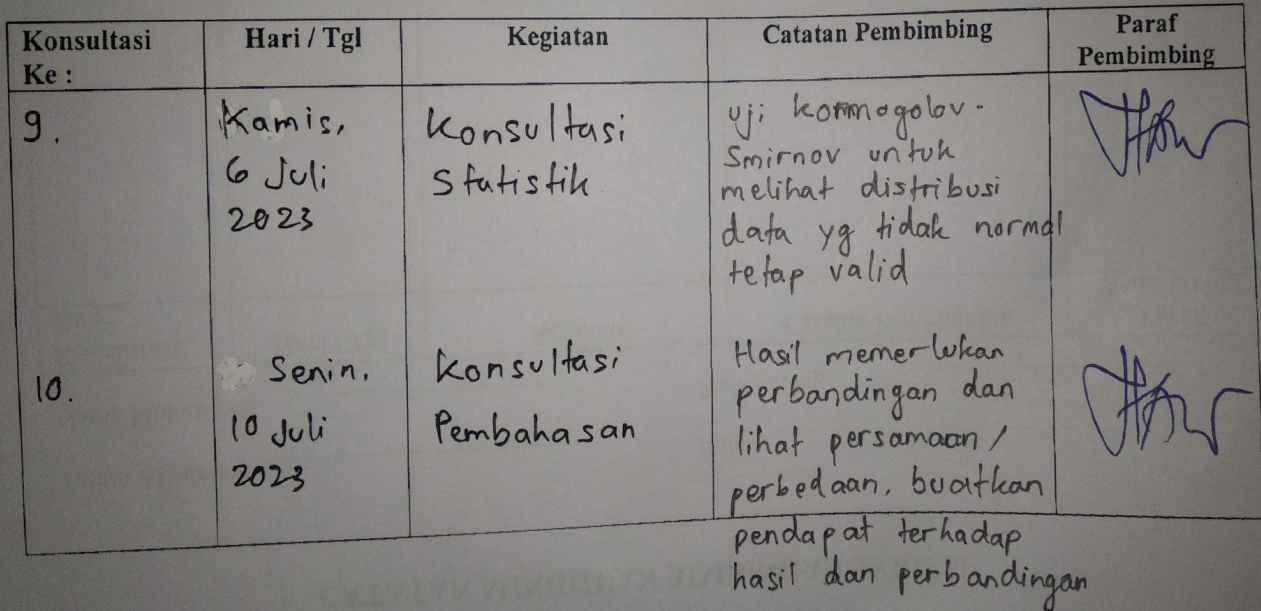 Konsultasi Ke :
Hari / Tgl
Kegiatan
Catatan Pembimbing
Paraf Pembimbing
9.
Kamis,
6 Juli
2023
Konsultasi
Statistik
Uji kormogolov-
Smirnov untuk
melihat distribusi
data yg tidak normal
tetap valid
10.
Senin,
10 Juli
2023
Konsultasi
Pembahasan
Hasil memerlukan
perbandingan dan
lihat persamaan /
perbedaan, buatkan
pendapat terhadap
hasil dan perbandingan